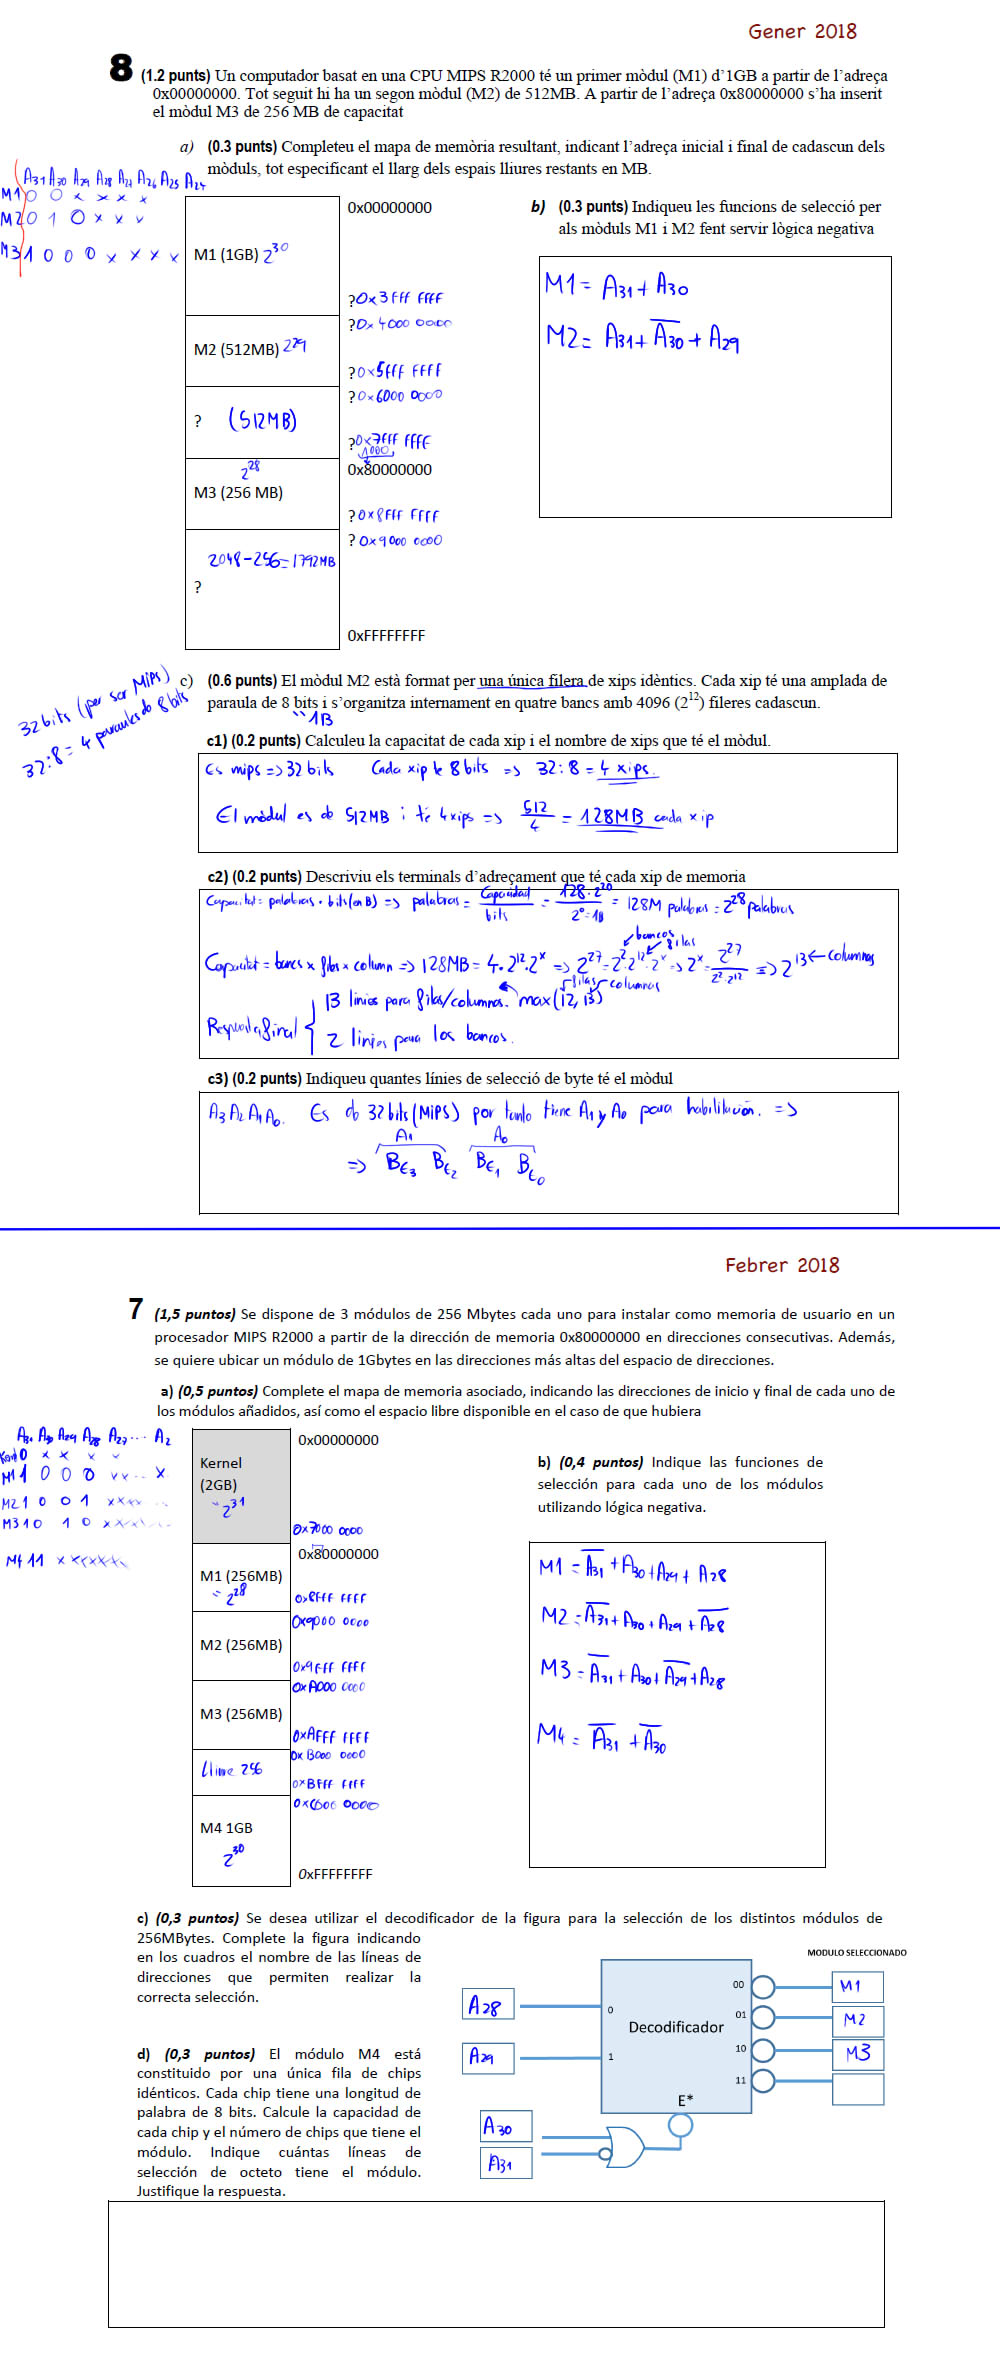 Gener 2018
8 (1.2 punts) Un computador basat en una CPU MIPS R2000 té un primer mòdul (M1) d'1GB a partir de l'adreça
0x00000000. Tot seguit hi ha un segon mòdul (M2) de 512MB. A partir de l'adreça 0x80000000 s'ha inserit
el mòdul M3 de 256 MB de capacitat
a) (0.3 punts) Completeu el mapa de memòria resultant, indicant l'adreça inicial i final de cadascun dels
mòduls, tot especificant el llarg dels espais lliures restants en MB.
A31 A30 A29 A28 A27 A26 A25 A24
M1 0 0 x x x x
M2 0 1 0 x x x
M3 1 0 0 0 x x x x
0x00000000
M1 (1GB) 2^30
?0x3fff ffff
?0x4000 0000
M2 (512MB) 2^29
?0x5fff ffff
?0x6000 0000
? (512MB)
?0x7fff ffff
1000
0x80000000
2^28
M3 (256 MB)
?0x8fff ffff
?0x9000 0000
2048-256=1792MB
?
0xFFFFFFFF
b) (0.3 punts) Indiqueu les funcions de selecció per
als mòduls M1 i M2 fent servir lògica negativa
M1 = A31 + A30
M2 = A31 + A̅3̅0̅ + A29
32 bits (per ser Mips)
32:8 = 4 paraules de 8 bits
c) (0.6 punts) El mòdul M2 està format per una única filera de xips idèntics. Cada xip té una amplada de
paraula de 8 bits i s'organitza internament en quatre bancs amb 4096 (2^12) fileres cadascun.
1B
c1) (0.2 punts) Calculeu la capacitat de cada xip i el nombre de xips que té el mòdul.
Es mips => 32 bits Cada xip té 8 bits => 32:8 = 4 xips.
El mòdul es de 512MB i té 4 xips => 512/4 = 128MB cada xip
c2) (0.2 punts) Descriviu els terminals d'adreçament que té cada xip de memoria
Capacitat = palabras · bits (en B) => palabras = Capacidad/bits = 128·2^20/2^0=1B = 128M palabras = 2^28 palabras
bancos filas
Capacitat = bancs x files x column => 128MB = 4·2^12·2^x => 2^27 = 2^2·2^12·2^x => 2^x = 2^27/2^2·2^12 => 2^13 ← columnas
filas columnas
Respuesta final { 13 linies para filas/columnas. max(12, 13)
2 linies para los bancos.
c3) (0.2 punts) Indiqueu quantes línies de selecció de byte té el mòdul
A3 A2 A1 A0. Es de 32 bits (MIPS) por tanto tiene A1 y A0 para habilitación. =>
A1 A0
=> BE3 BE2 BE1 BE0
Febrer 2018
7 (1,5 puntos) Se dispone de 3 módulos de 256 Mbytes cada uno para instalar como memoria de usuario en un
procesador MIPS R2000 a partir de la dirección de memoria 0x80000000 en direcciones consecutivas. Además,
se quiere ubicar un módulo de 1Gbytes en las direcciones más altas del espacio de direcciones.
a) (0,5 puntos) Complete el mapa de memoria asociado, indicando las direcciones de inicio y final de cada uno de
los módulos añadidos, así como el espacio libre disponible en el caso de que hubiera
A31 A30 A29 A28 A27 ... A2
Kern 0 x x x x
M1 1 0 0 0 x x ... x
M2 1 0 0 1 x x x x ...
M3 1 0 1 0 x x x x ...
M4 1 1 x x x x x x x
0x00000000
Kernel
(2GB)
2^31
0x7000 0000
0x80000000
M1 (256MB)
= 2^28
0x8FFF FFFF
0x9000 0000
M2 (256MB)
0x9FFF FFFF
0xA000 0000
M3 (256MB)
0xAFFF FFFF
0xB000 0000
Lliure 256
0xBFFF FFFF
0xC000 0000
M4 1GB
2^30
0xFFFFFFFF
b) (0,4 puntos) Indique las funciones de
selección para cada uno de los módulos
utilizando lógica negativa.
M1 = A̅3̅1̅ + A30 + A29 + A28
M2 = A̅3̅1̅ + A30 + A29 + A̅2̅8̅
M3 = A̅3̅1̅ + A30 + A̅2̅9̅ + A28
M4 = A̅3̅1̅ + A̅3̅0̅
c) (0,3 puntos) Se desea utilizar el decodificador de la figura para la selección de los distintos módulos de
256MBytes. Complete la figura indicando
en los cuadros el nombre de las líneas de
direcciones que permiten realizar la
correcta selección.
MODULO SELECCIONADO
00 M1
A28 0
01 M2
Decodificador
10 M3
A29 1
11
E*
A30
A31
d) (0,3 puntos) El módulo M4 está
constituido por una única fila de chips
idénticos. Cada chip tiene una longitud de
palabra de 8 bits. Calcule la capacidad de
cada chip y el número de chips que tiene el
módulo. Indique cuántas líneas de
selección de octeto tiene el módulo.
Justifique la respuesta.